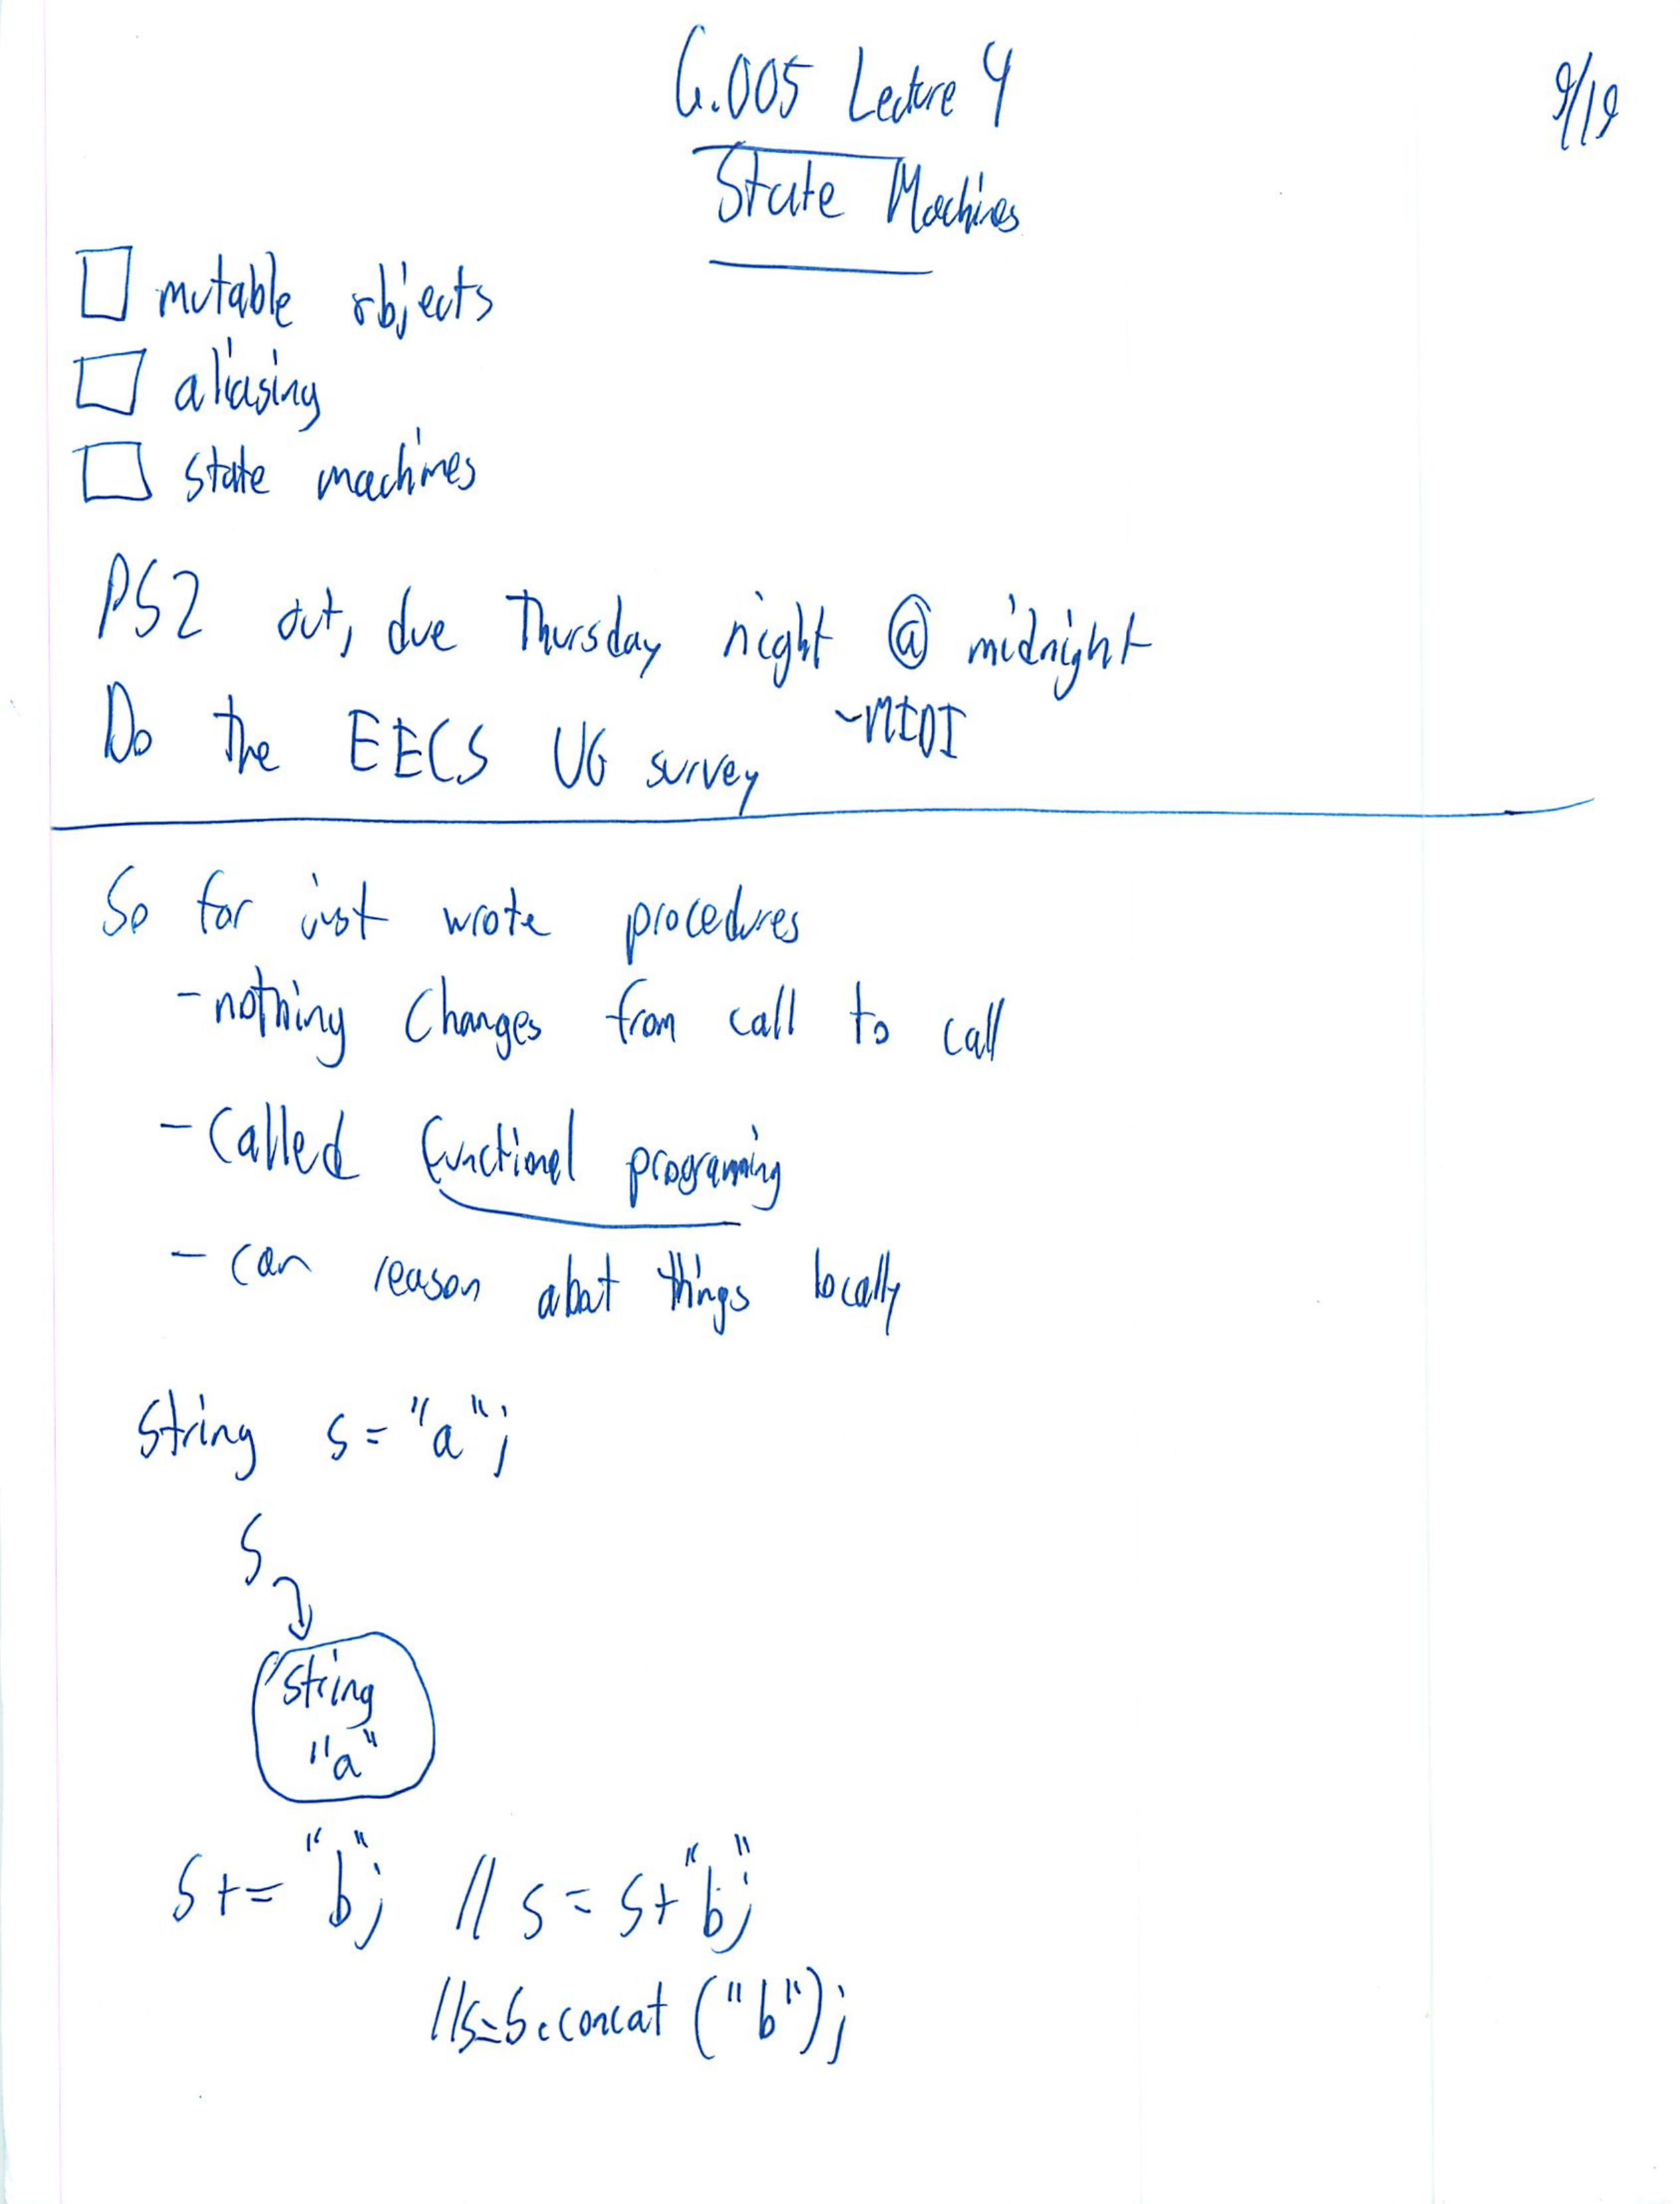 6.005 Lecture 4
9/19
State Machines
mutable objects
aliasing
state machines
PS2 out, due Thursday night @ midnight
-MIDI
Do the EECS UG survey
So far just wrote procedures
-nothing changes from call to call
-Called functional programing
-can reason about things locally
String s="a";
S
String
"a"
s+= "b"; // s = s+"b";
//s=s.concat ("b");